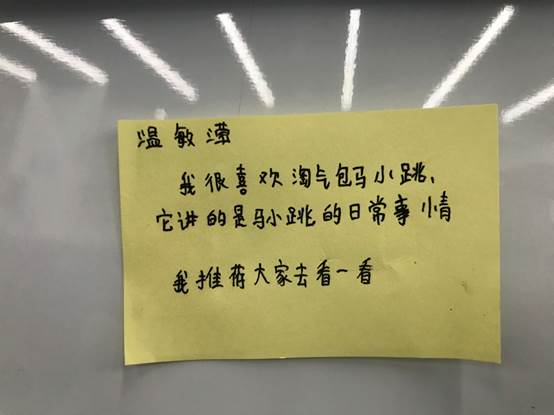 温敏滢
我很喜欢淘气包马小跳、
它讲的是马小跳的日常事情
我推荐大家去看一看